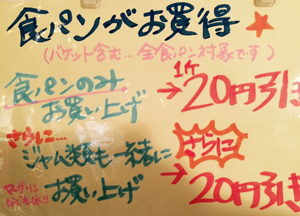 食パンがお買得
(バケット含む…全食パン対象です)
食パンのみ
お買い上げ
1ケ
→20円引き
さらに…
ジャム類も一緒に
お買い上げ
さらに
→20円引き
マーガリン
なども!!